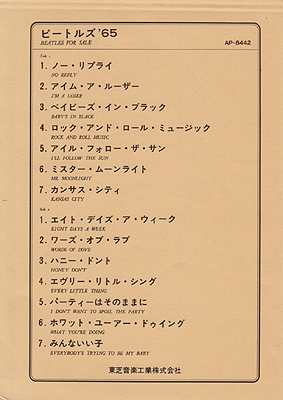 ビートルズ '65
BEATLES FOR SALE
AP-8442
Side 1
1. ノー・リプライ
NO REPLY
2. アイム・ア・ルーザー
I'M A LOSER
3. ベイビーズ・イン・ブラック
BABY'S IN BLACK
4. ロック・アンド・ロール・ミュージック
ROCK AND ROLL MUSIC
5. アイル・フォロー・ザ・サン
I'LL FOLLOW THE SUN
6. ミスター・ムーンライト
MR. MOONLIGHT
7. カンサス・シティ
KANSAS CITY
Side 2
1. エイト・デイズ・ア・ウィーク
EIGHT DAYS A WEEK
2. ワーズ・オブ・ラブ
WORDS OF LOVE
3. ハニー・ドント
HONEY DON'T
4. エヴリー・リトル・シング
EVERY LITTLE THING
5. パーティーはそのままに
I DON'T WANT TO SPOIL THE PARTY
6. ホワット・ユーアー・ドゥイング
WHAT YOU'RE DOING
7. みんないい子
EVERYBODY'S TRYING TO BE MY BABY
東芝音楽工業株式会社